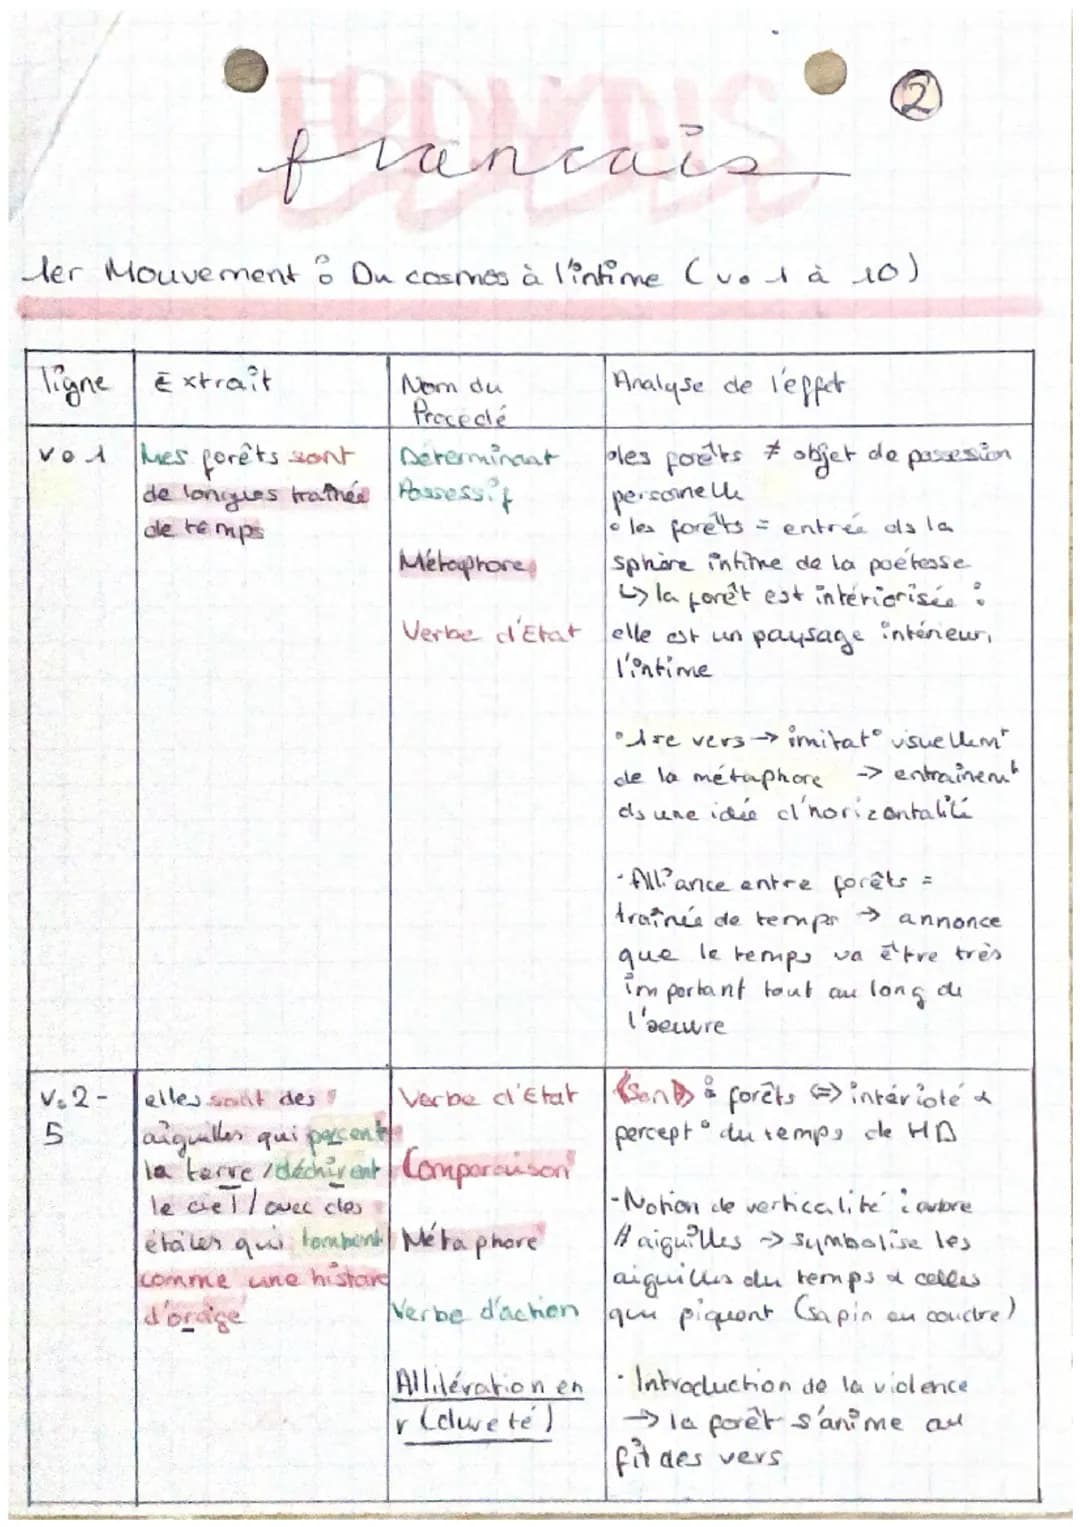 FRANCAIS
2
francais
1er Mouvement : Du cosmos à l'intime (v. 1 à 10)
ligne
Extrait
Nom du
Procédé
Analyse de l'effet
v. 1
Mes forêts sont
de longues traînée
de temps
Déterminant
Possessif
Métaphore
Verbe d'Etat
•les forêts ≠ objet de possession
personnelle
• les forêts = entrée ds la
sphère intime de la poétesse
↳ la forêt est intériorisée :
elle est un paysage intérieur,
l'intime
•1re vers → imitat° visuellemt
de la métaphore -> entrainemt
ds une idée d'horizontalité
•Alliance entre forêts =
traînée de temps → annonce
que le temps va être très
important tout au long de
l'oeuvre
v. 2 -
5
elles sont des
aiguilles qui percent
la terre / déchirent
le ciel / avec des
étoiles qui tombent
comme une histoire
d'orage
Verbe d'Etat
Comparaison
Métaphore
Verbe d'action
Allitération en
r (dureté)
(Sont) : forêts <=> intérioté &
percept° du temps de HD
-Notion de verticalité : arbre
// aiguilles → symbolise les
aiguilles du temps & celles
qui piquent (sapin ou coudre)
• Introduction de la violence
→ la forêt s'anime au
fil des vers